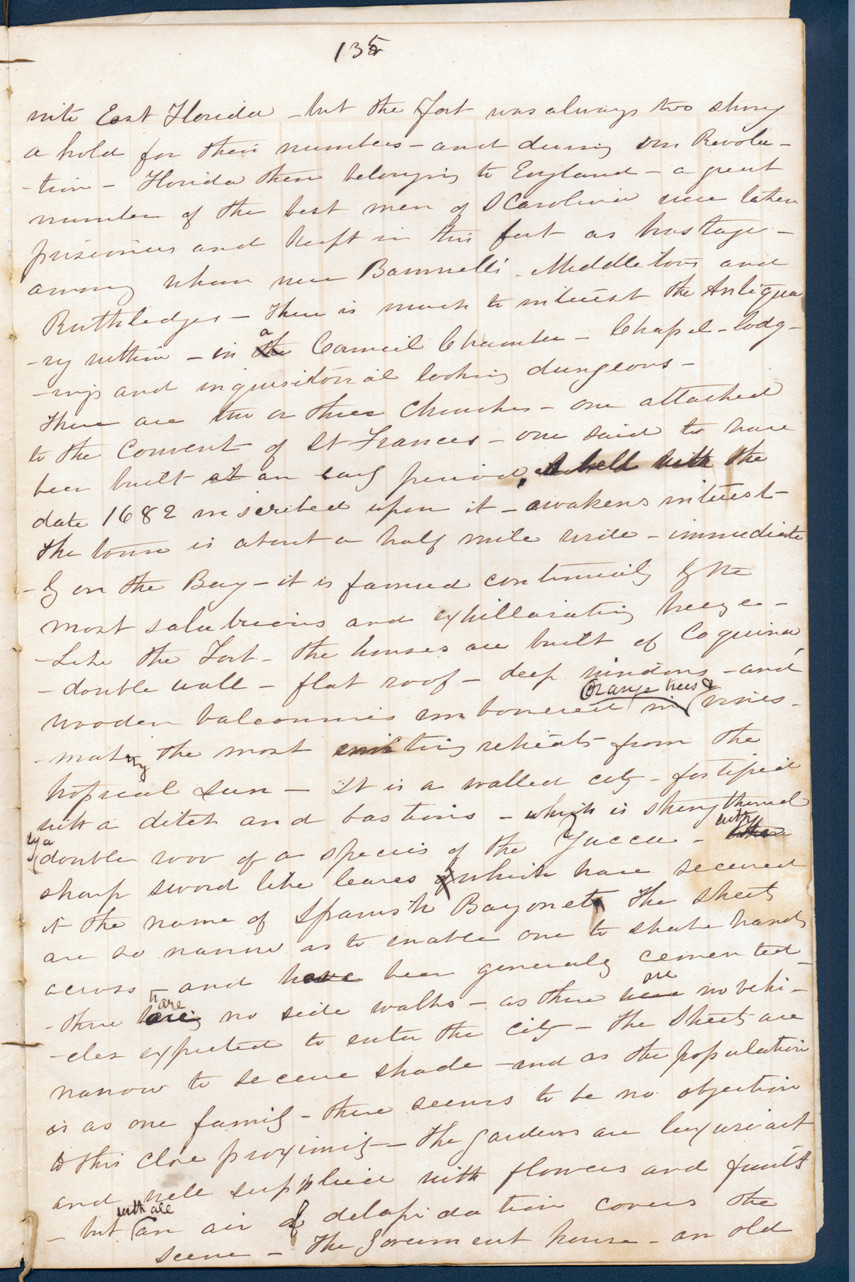 135
nite East Florida - but the Fort was always too strong
a hold for their numbers - and during our Revolu -
- tion - Florida then belonging to England - a great
number of the best men of S Carolina were taken
prisioners and kept in this fort as hostage -
among whom were Middletons and
Ruthledges - There is much to interest the Antiqua
- ry within - in a Council Chamber - Chapel - lodg -
- ings and inquisitorial looking dungeons -
There are two or three Churches - one attached
to the Convent of St Frances - one said to have
been built at an early period, the
date 1682 inscribed upon it - awakens interest -
The town is about a half mile wide - immediate
- ly on the Bay - it is fanned continually by the
most salubrious and exhillarating breeze -
- Like the Fort - the houses are built of Coquina,
- double wall - flat roof - deep windows - and
wooden balconnies embowered in Orange trees & vines -
- making the most inviting retreats from the
tropical sun - It is a walled city - fortified
with a ditch and bastions - which is strengthened
by a double row of a species of the Yucca - with
sharp sword like leaves which have secured
it the name of Spanish Bayonet. The streets
are so narrow as to enable one to shake hands
across - and have been generally cemented -
- there are no side walks - as there are no vehi -
- cles expected to enter the city - The streets are
narrow to secure shade - and as the population
is as one family - there seems to be no objection
to this close proximity - The gardens are luxuriant
and well supplied with flowers and fruits
- but with all an air of delapidation covers the
scene - The Goverment house - an old